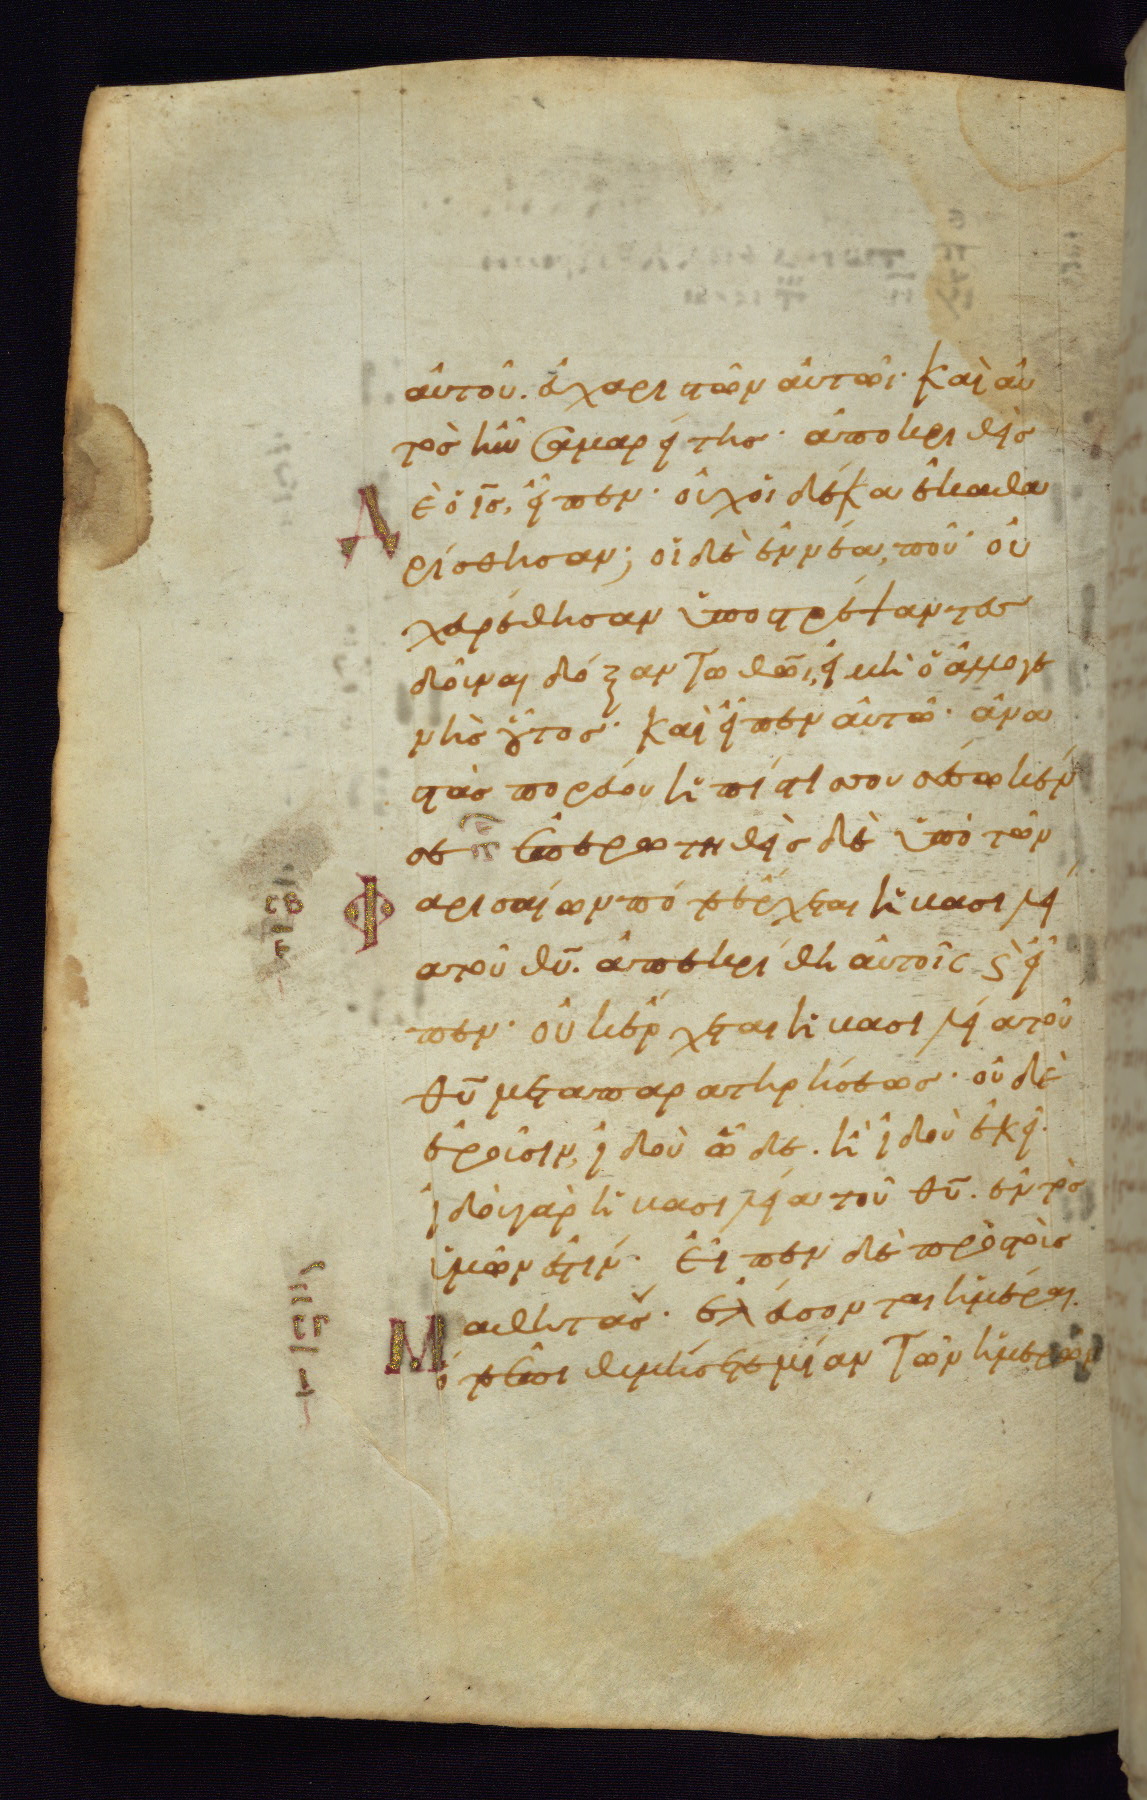 αὐτοῦ. εὐχαριστῶν αὐτῶι· καὶ αὐ
τὸς ἦν σαμαρίτης· ἀποκριθεὶς
δὲ ὁ ις, εἶπεν· οὐχ οἱ δέκα ἐκαθα
ρίσθησαν; οἱ δὲ ἐννέα, ποῦ· οὐ
χ ευρέθησαν ὑποστρέψαντες
δοῦναι δόξαν τῶ θῶι, εἰ μὴ ὁ ἀλλογε
νὴς οὗτος· καὶ εἶπεν αὐτῶ· ἀνα
στὰς πορεύου ἡ πίστις σου σέσωκέν
σε ἐπερωτηθεὶς δὲ ὑπὸ τῶν
Φαρισαίων πότε ἔρχεται ἡ βασιλεί
α τοῦ θυ. ἀπεκρίθη αὐτοῖς ϛ εἶ
πεν· οὐκ ἔρχεται ἡ βασιλεία τοῦ
θυ μετα παρατηρήσεως· οὐδὲ
ἐροῦσιν, ἰδοὺ ὧδε. ἢ ἰδοὺ ἐκεῖ·
ἰδοὺ γὰρ ἡ βασιλεία τοῦ θυ. ἐντὸς
ὑμῶν ἐστίν· εἶπεν δὲ πρὸς τοὺς
Μαθητάς· ἐλεύσονται ἡμέραι.
ὅτε ἐπιθυμήσετε μίαν τῶν ἡμερῶν